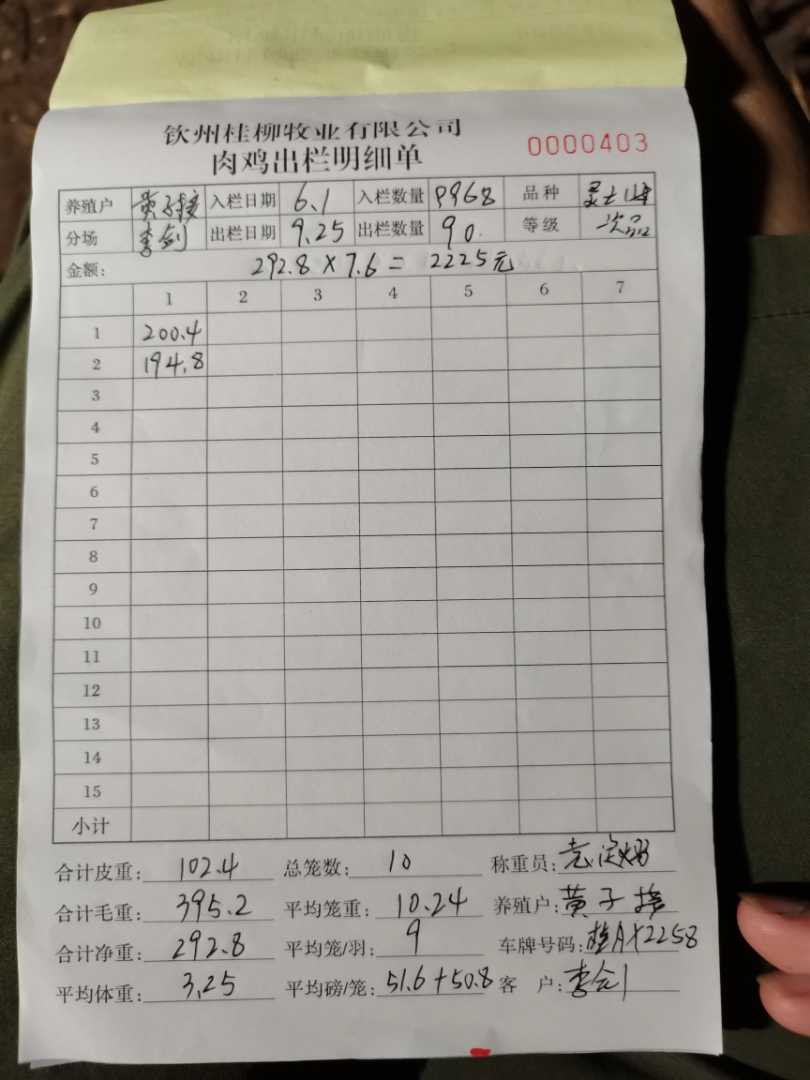 钦州桂柳牧业有限公司
肉鸡出栏明细单 0000403
养殖户 黄子 入栏日期 6.1 入栏数量 9968 品种 灵士
分场 李剑 出栏日期 9.25 出栏数量 90. 等级 次品
金额: 292.8 × 7.6 = 2225元
1 2 3 4 5 6 7
1 200.4
2 194.8
3
4
5
6
7
8
9
10
11
12
13
14
15
小计
合计皮重: 102.4 总笼数: 10 称重员:
合计毛重: 395.2 平均笼重: 10.24 养殖户: 黄子
合计净重: 292.8 平均笼/羽: 9 车牌号码: 桂AX2258
平均体重: 3.25 平均磅/笼: 51.6+50.8 客 户: 李剑